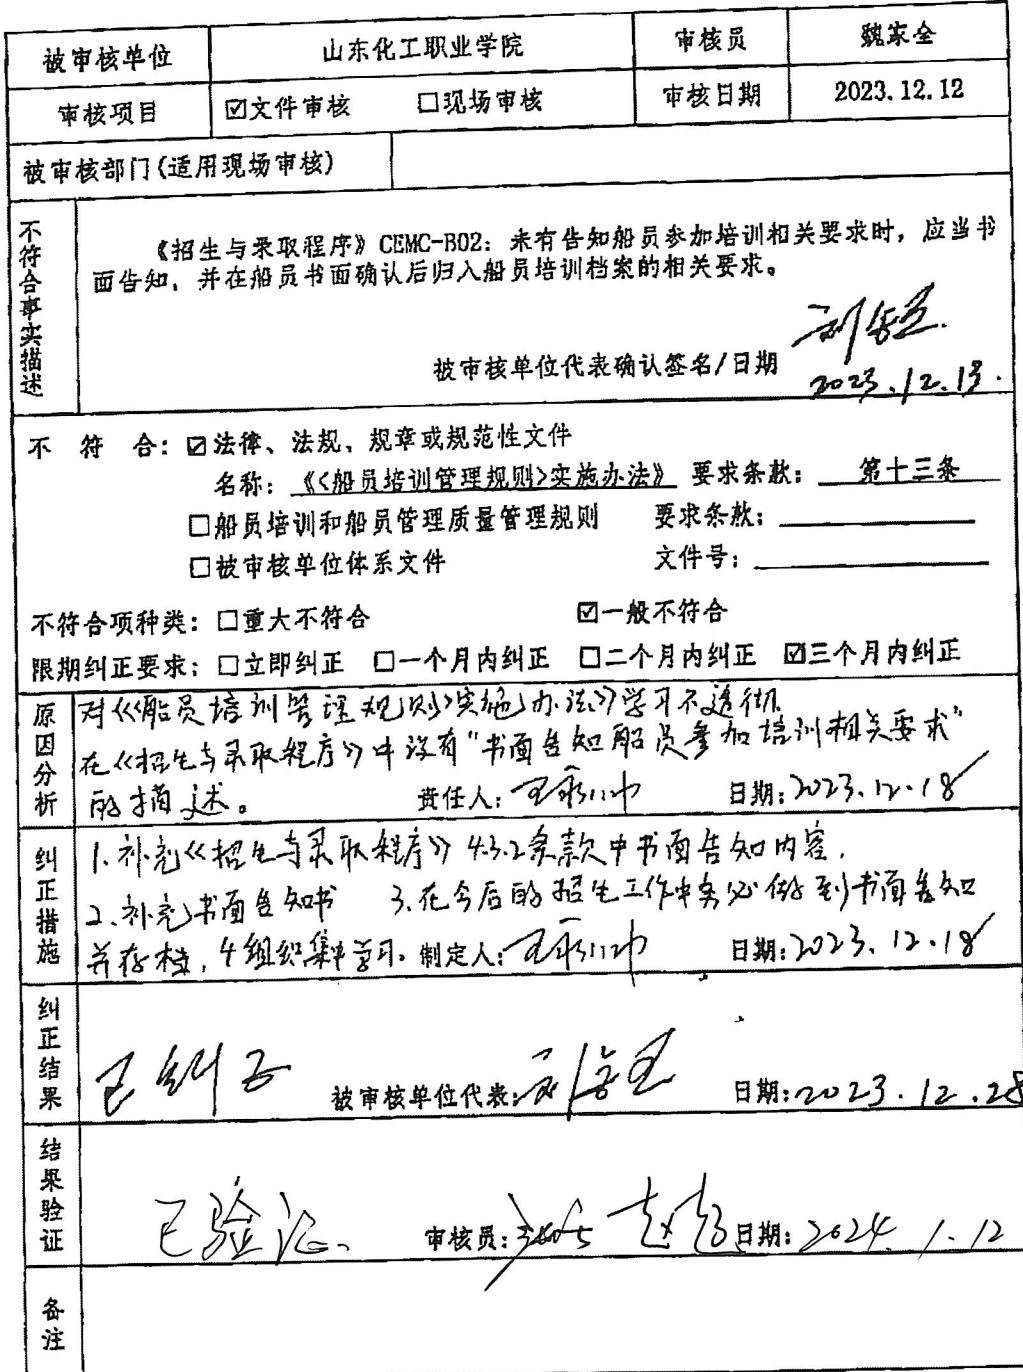 被审核单位 山东化工职业学院 审核员 魏家全
审核项目 ☑文件审核 □现场审核 审核日期 2023.12.12
被审核部门(适用现场审核)
不符合事实描述
《招生与录取程序》CEMC-B02：未有告知船员参加培训相关要求时，应当书
面告知，并在船员书面确认后归入船员培训档案的相关要求。
被审核单位代表确认签名/日期
2023.12.13.
不 符 合：☑法律、法规、规章或规范性文件
名称：《<船员培训管理规则>实施办法》 要求条款：第十三条
□船员培训和船员管理质量管理规则 要求条款：
□被审核单位体系文件 文件号：
不符合项种类：□重大不符合 ☑一般不符合
限期纠正要求：□立即纠正 □一个月内纠正 □二个月内纠正 ☑三个月内纠正
原因分析
对《<船员培训管理规则>实施办法》学习不透彻
在《招生与录取程序》中没有"书面告知船员参加培训相关要求"
的描述。 责任人： 日期：2023.12.18
纠正措施
1.补充《招生与录取程序》4.3.2条款中书面告知内容.
2.补充书面告知书 3.在今后的招生工作中务必做到书面告知
并存档，4组织集中学习。 制定人： 日期：2023.12.18
纠正结果
已纠正 被审核单位代表： 日期：2023.12.28
结果验证
已验证、 审核员： 日期：2024.1.12
备注